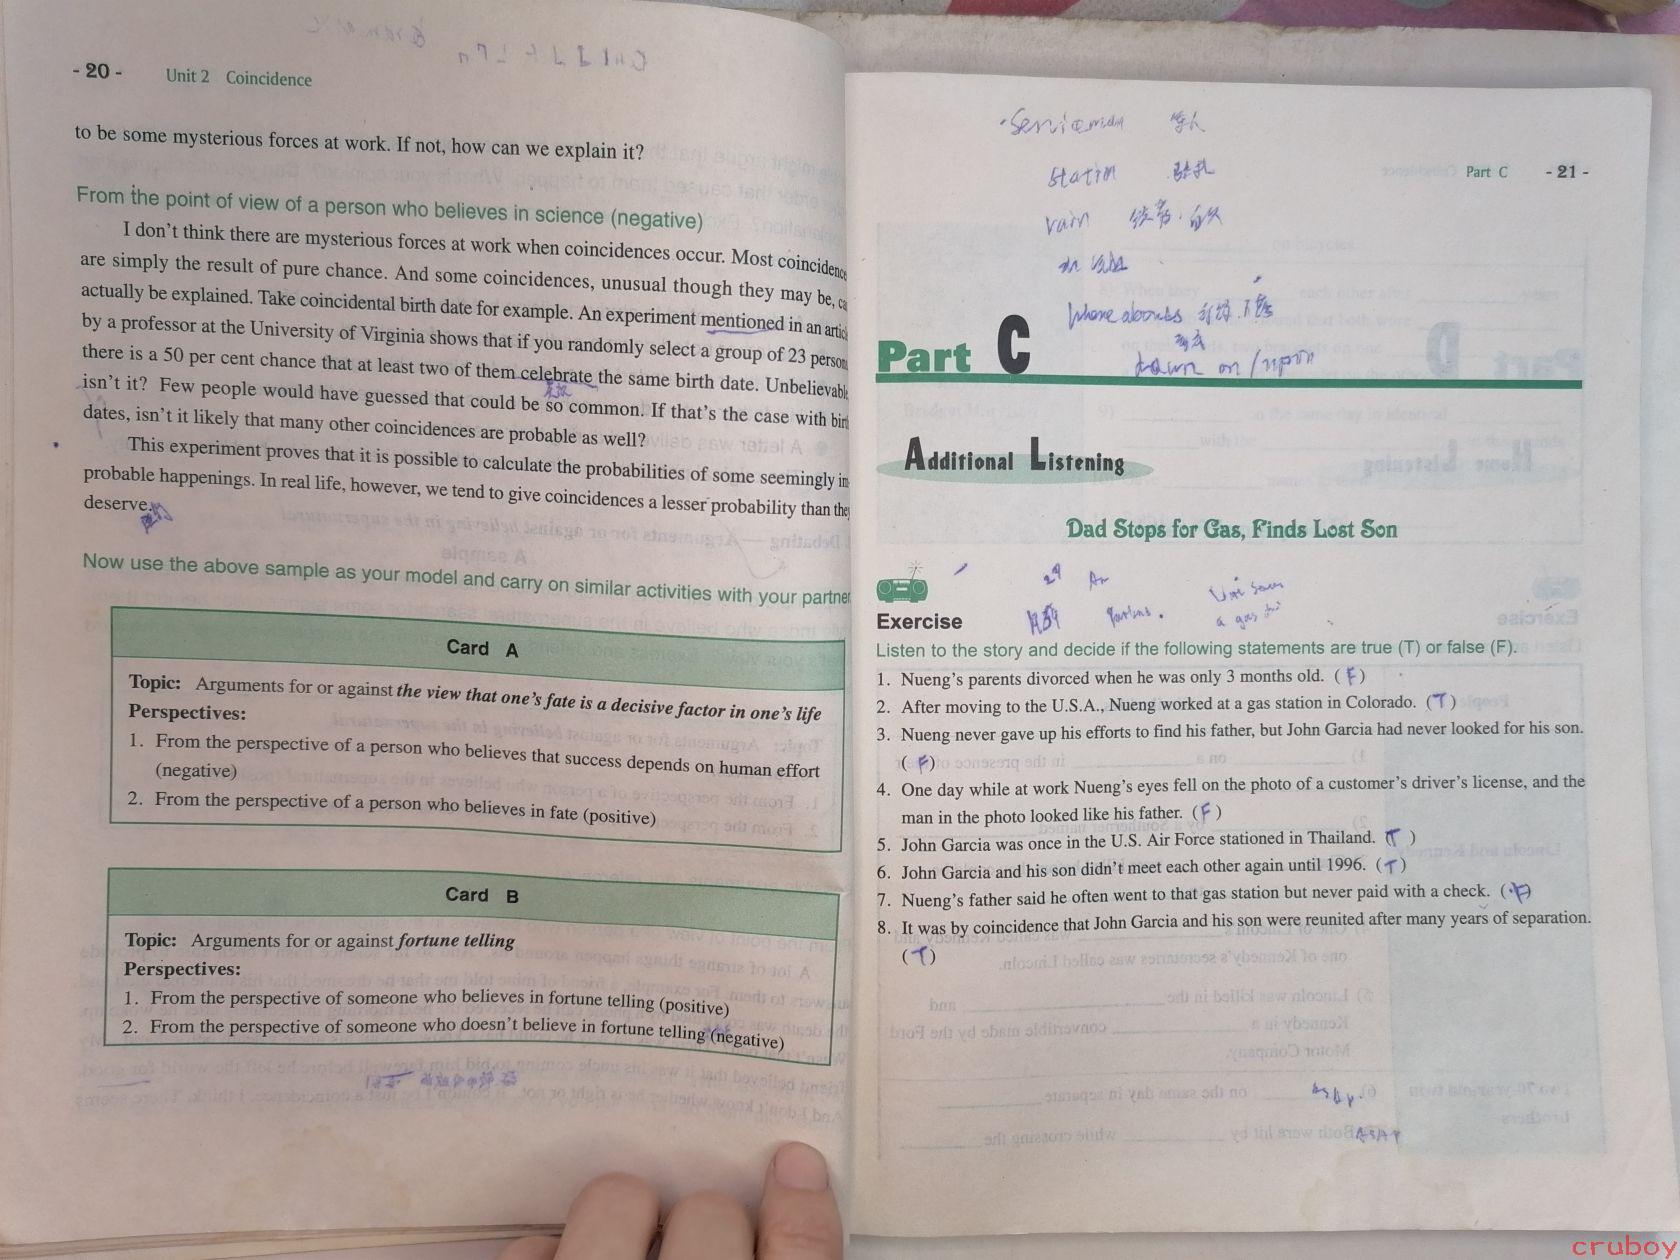 - 20 -
Unit 2 Coincidence
to be some mysterious forces at work. If not, how can we explain it?
From the point of view of a person who believes in science (negative)
I don't think there are mysterious forces at work when coincidences occur. Most coincidence
are simply the result of pure chance. And some coincidences, unusual though they may be, ca
actually be explained. Take coincidental birth date for example. An experiment mentioned in an artic
by a professor at the University of Virginia shows that if you randomly select a group of 23 person
there is a 50 per cent chance that at least two of them celebrate the same birth date. Unbelievabl
isn't it? Few people would have guessed that could be so common. If that's the case with birt
dates, isn't it likely that many other coincidences are probable as well?
This experiment proves that it is possible to calculate the probabilities of some seemingly im
probable happenings. In real life, however, we tend to give coincidences a lesser probability than the
deserve.
Now use the above sample as your model and carry on similar activities with your partner
Card A
Topic: Arguments for or against the view that one's fate is a decisive factor in one's life
Perspectives:
1. From the perspective of a person who believes that success depends on human effort
(negative)
2. From the perspective of a person who believes in fate (positive)
Card B
Topic: Arguments for or against fortune telling
Perspectives:
1. From the perspective of someone who believes in fortune telling (positive)
2. From the perspective of someone who doesn't believe in fortune telling (negative)
Part C
- 21 -
station
vain
Where abouts
down on / upon
Part C
Additional Listening
Dad Stops for Gas, Finds Lost Son
Exercise
Listen to the story and decide if the following statements are true (T) or false (F).
1. Nueng's parents divorced when he was only 3 months old. (F)
2. After moving to the U.S.A., Nueng worked at a gas station in Colorado. (T)
3. Nueng never gave up his efforts to find his father, but John Garcia had never looked for his son.
(F)
4. One day while at work Nueng's eyes fell on the photo of a customer's driver's license, and the
man in the photo looked like his father. (F)
5. John Garcia was once in the U.S. Air Force stationed in Thailand. (T)
6. John Garcia and his son didn't meet each other again until 1996. (T)
7. Nueng's father said he often went to that gas station but never paid with a check. (F)
8. It was by coincidence that John Garcia and his son were reunited after many years of separation.
(T)
ASAP
cruboy